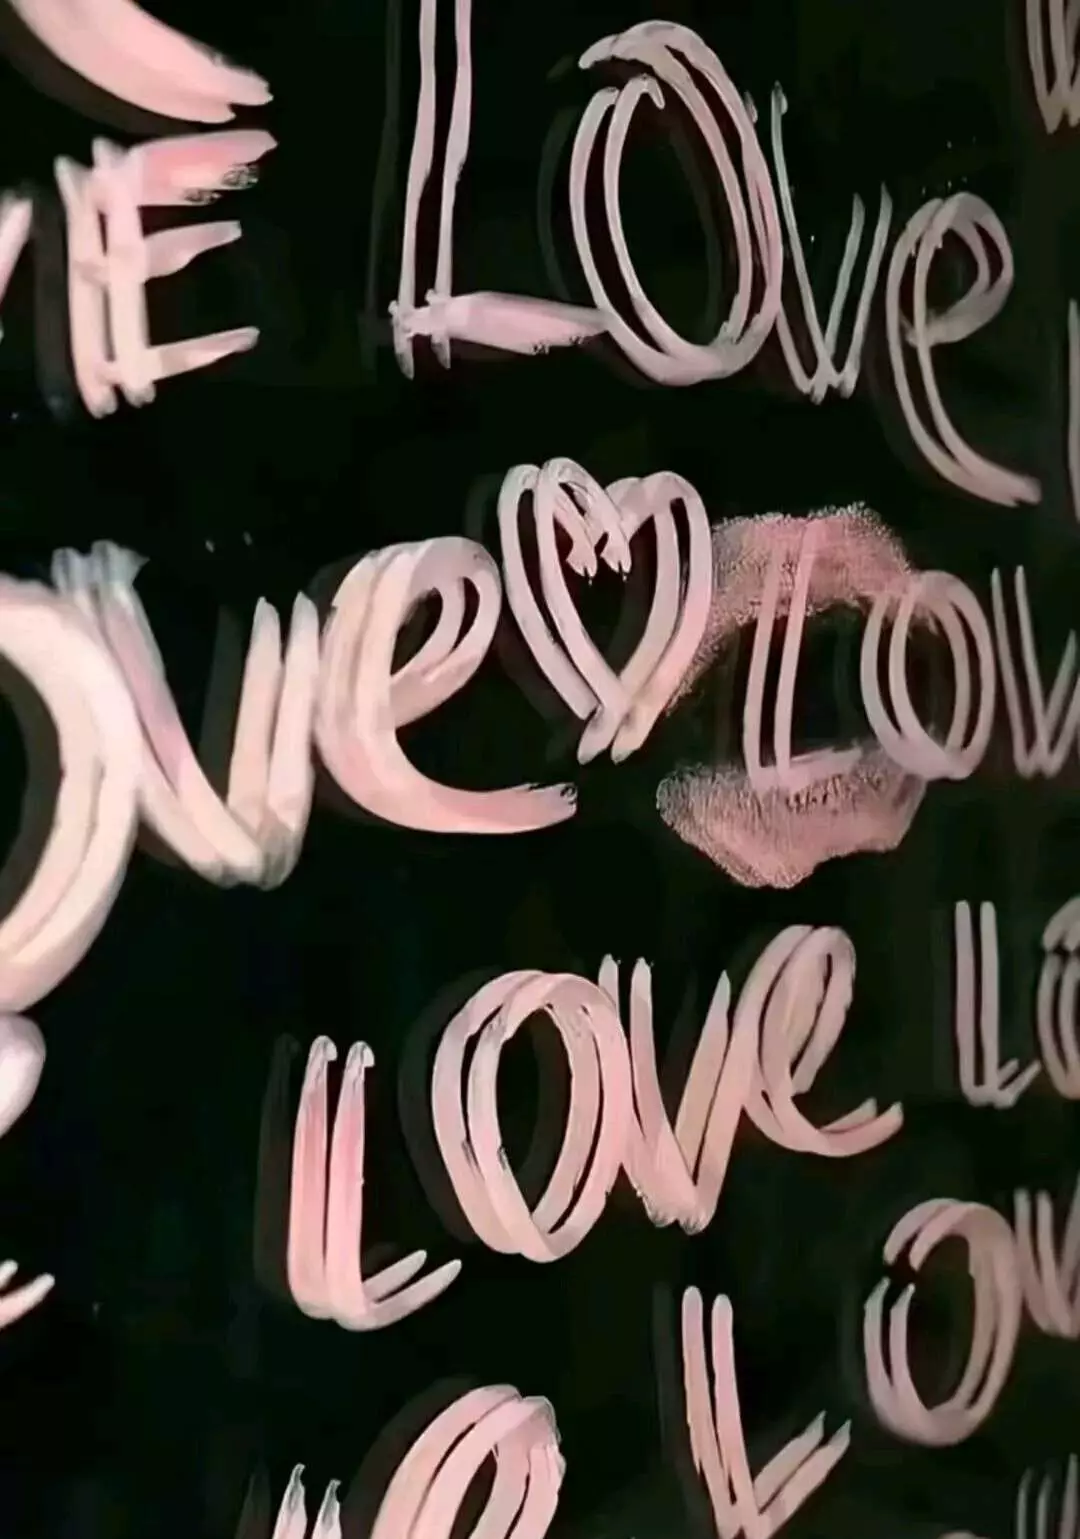 E Love
ove Lov
Love Lo
Lo
L